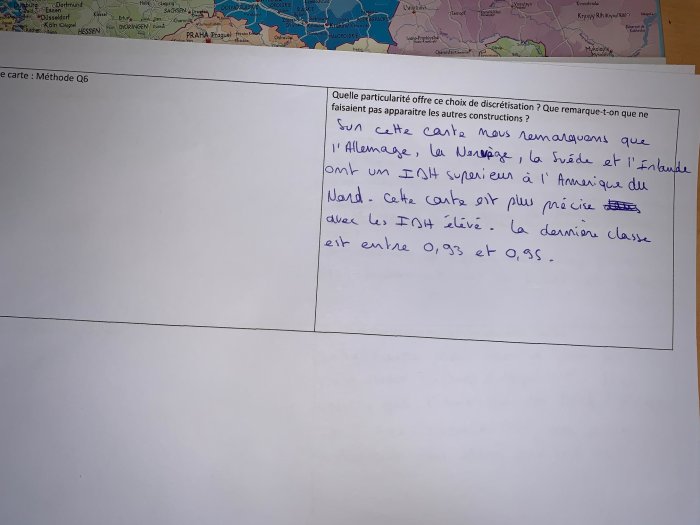 Dortmund
Essen
Düsseldorf
Köln (Cologne)
HESSEN
SACHSEN
PRAHA (Prague)
e carte : Méthode Q6
Quelle particularité offre ce choix de discrétisation ? Que remarque-t-on que ne
faisaient pas apparaitre les autres constructions ?
Sur cette carte nous remarquons que
l'Allemage, la Norvège, la Suéde et l'Irlande
ont un IDH superieur à l'Amerique du
Nord. Cette carte est plus précise
avec les IDH élévé. La dernière classe
est entre 0,93 et 0,95.